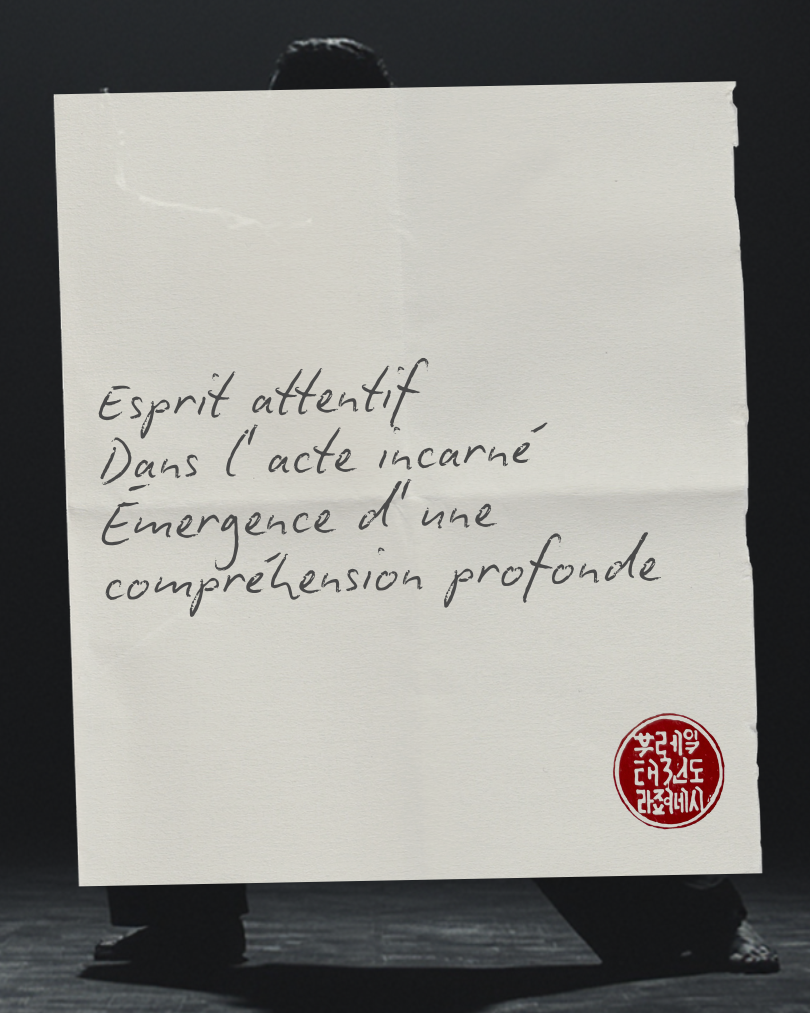 Esprit attentif
Dans l'acte incarné
Émergence d'une
compréhension profonde
태권도